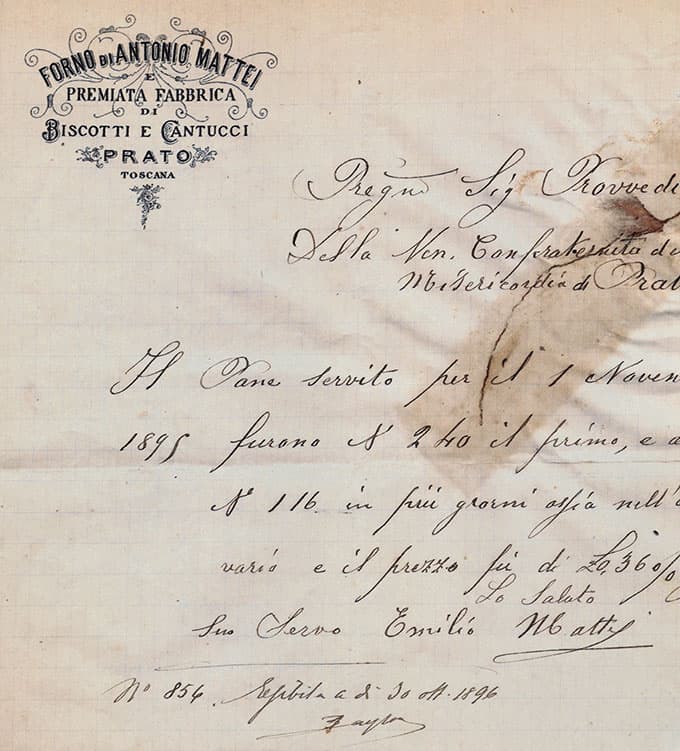 FORNO DI ANTONIO MATTEI
E
PREMIATA FABBRICA
DI
BISCOTTI E CANTUCCI
PRATO
TOSCANA
Pregmo Sig Provvedi
Della Ven. Confraternita di
Misericordia di Prat
Il Pane servito per il 1 Novem
1895 furono N 240 il primo, e a
N° 116 in più giorni ossia nell'
vario e il prezzo fù di L0,36 %
Lo Saluto
Suo Servo Emilio Mattei
N° 854. Esibita a dì 30 ott. 1896